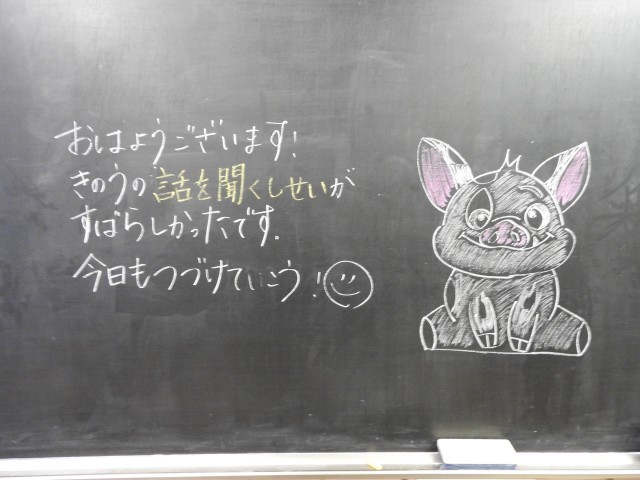 おはようございます!
きのうの話を聞くしせいが
すばらしかったです.
今日もつづけていこう!